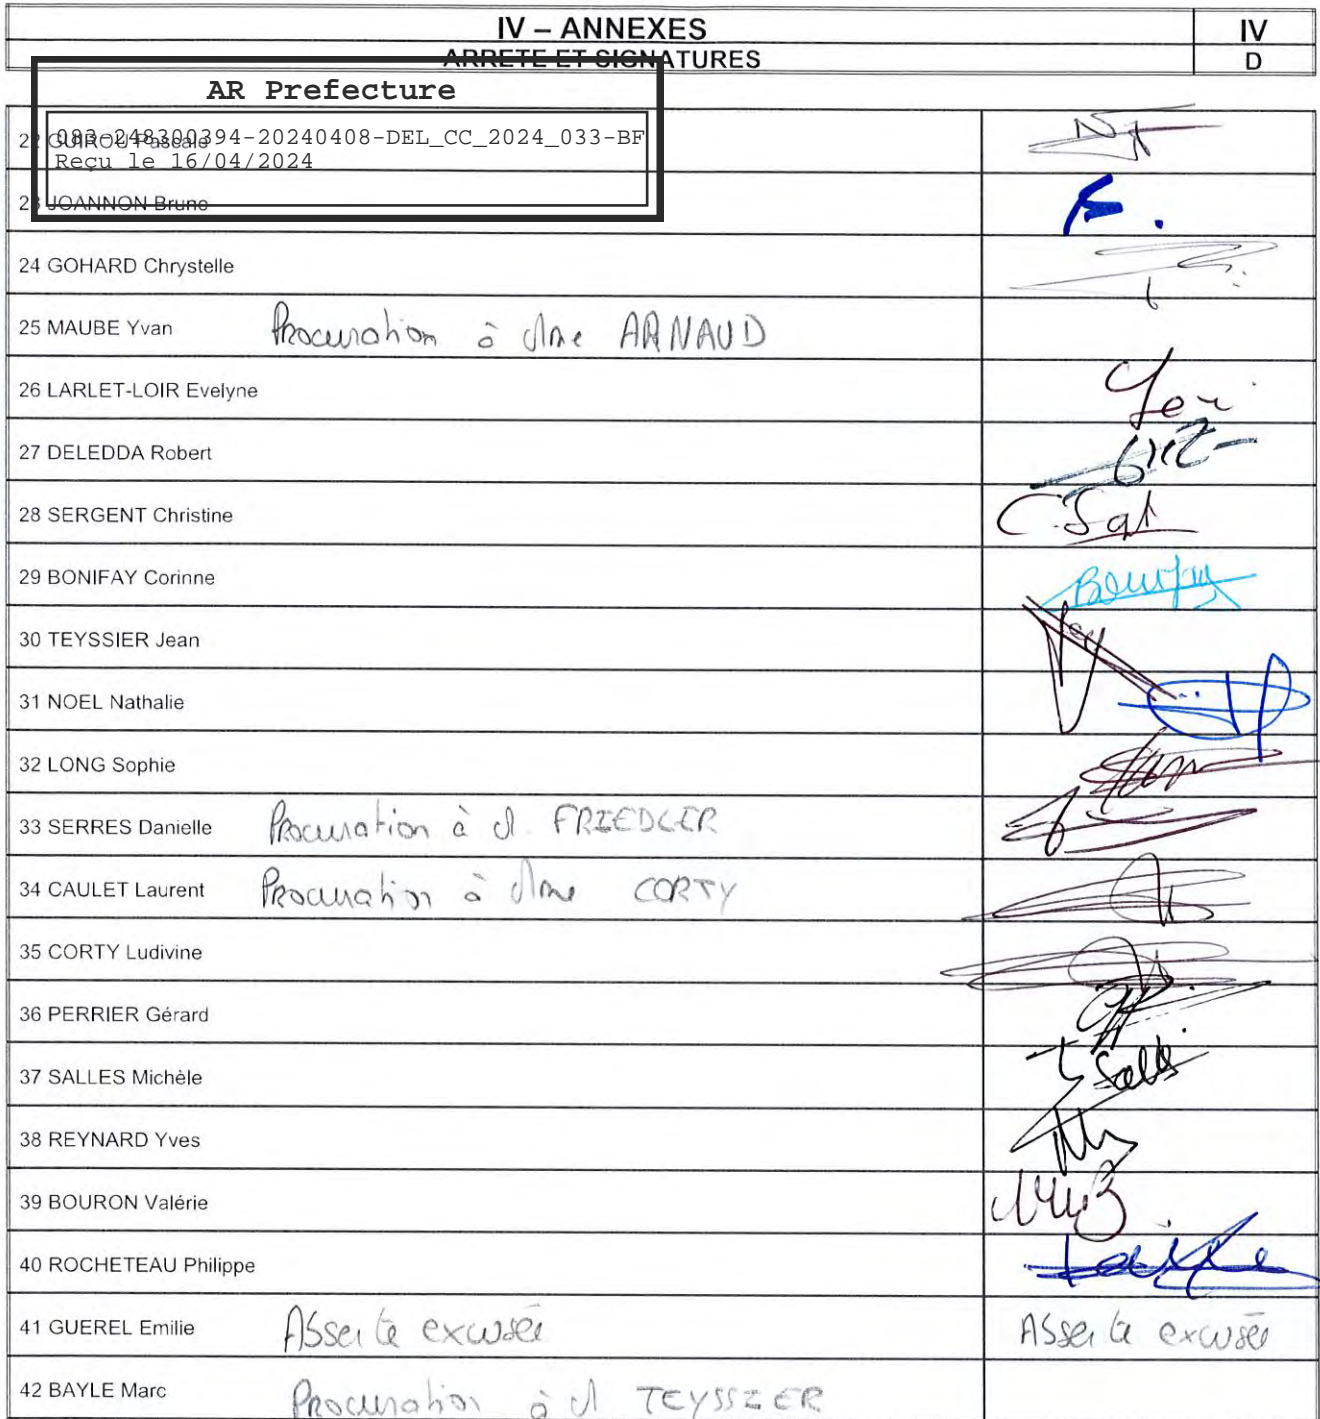 IV – ANNEXES IV
ARRETE ET SIGNATURES D
AR Prefecture
083-248300394-20240408-DEL_CC_2024_033-BF
Reçu le 16/04/2024
22 GUIROU Pascale
23 JOANNON Bruno
24 GOHARD Chrystelle
25 MAUBE Yvan Procuration à Mme ARNAUD
26 LARLET-LOIR Evelyne
27 DELEDDA Robert
28 SERGENT Christine C. Sgt
29 BONIFAY Corinne Bonifay
30 TEYSSIER Jean
31 NOEL Nathalie
32 LONG Sophie
33 SERRES Danielle Procuration à M. FRIEDLER
34 CAULET Laurent Procuration à Mme CORTY
35 CORTY Ludivine
36 PERRIER Gérard
37 SALLES Michèle Salles
38 REYNARD Yves
39 BOURON Valérie
40 ROCHETEAU Philippe
41 GUEREL Emilie Absente excusée Absente excusée
42 BAYLE Marc Procuration à M TEYSSIER